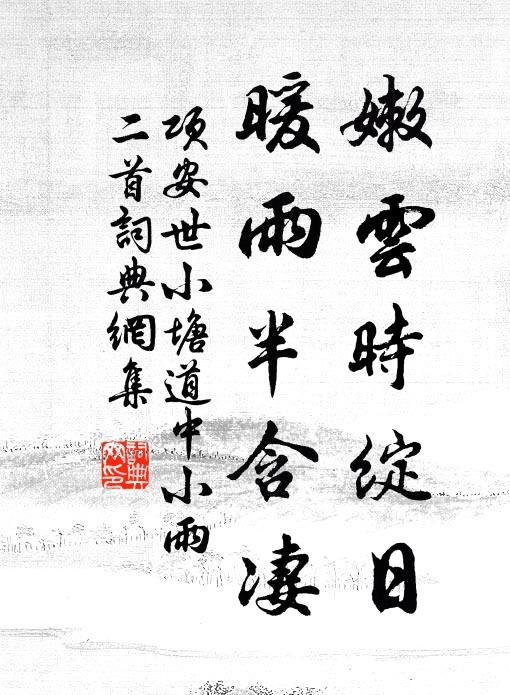 嫩雲時綻日
暖雨半含淒
項安世小塘道中小雨
二首詞典網集